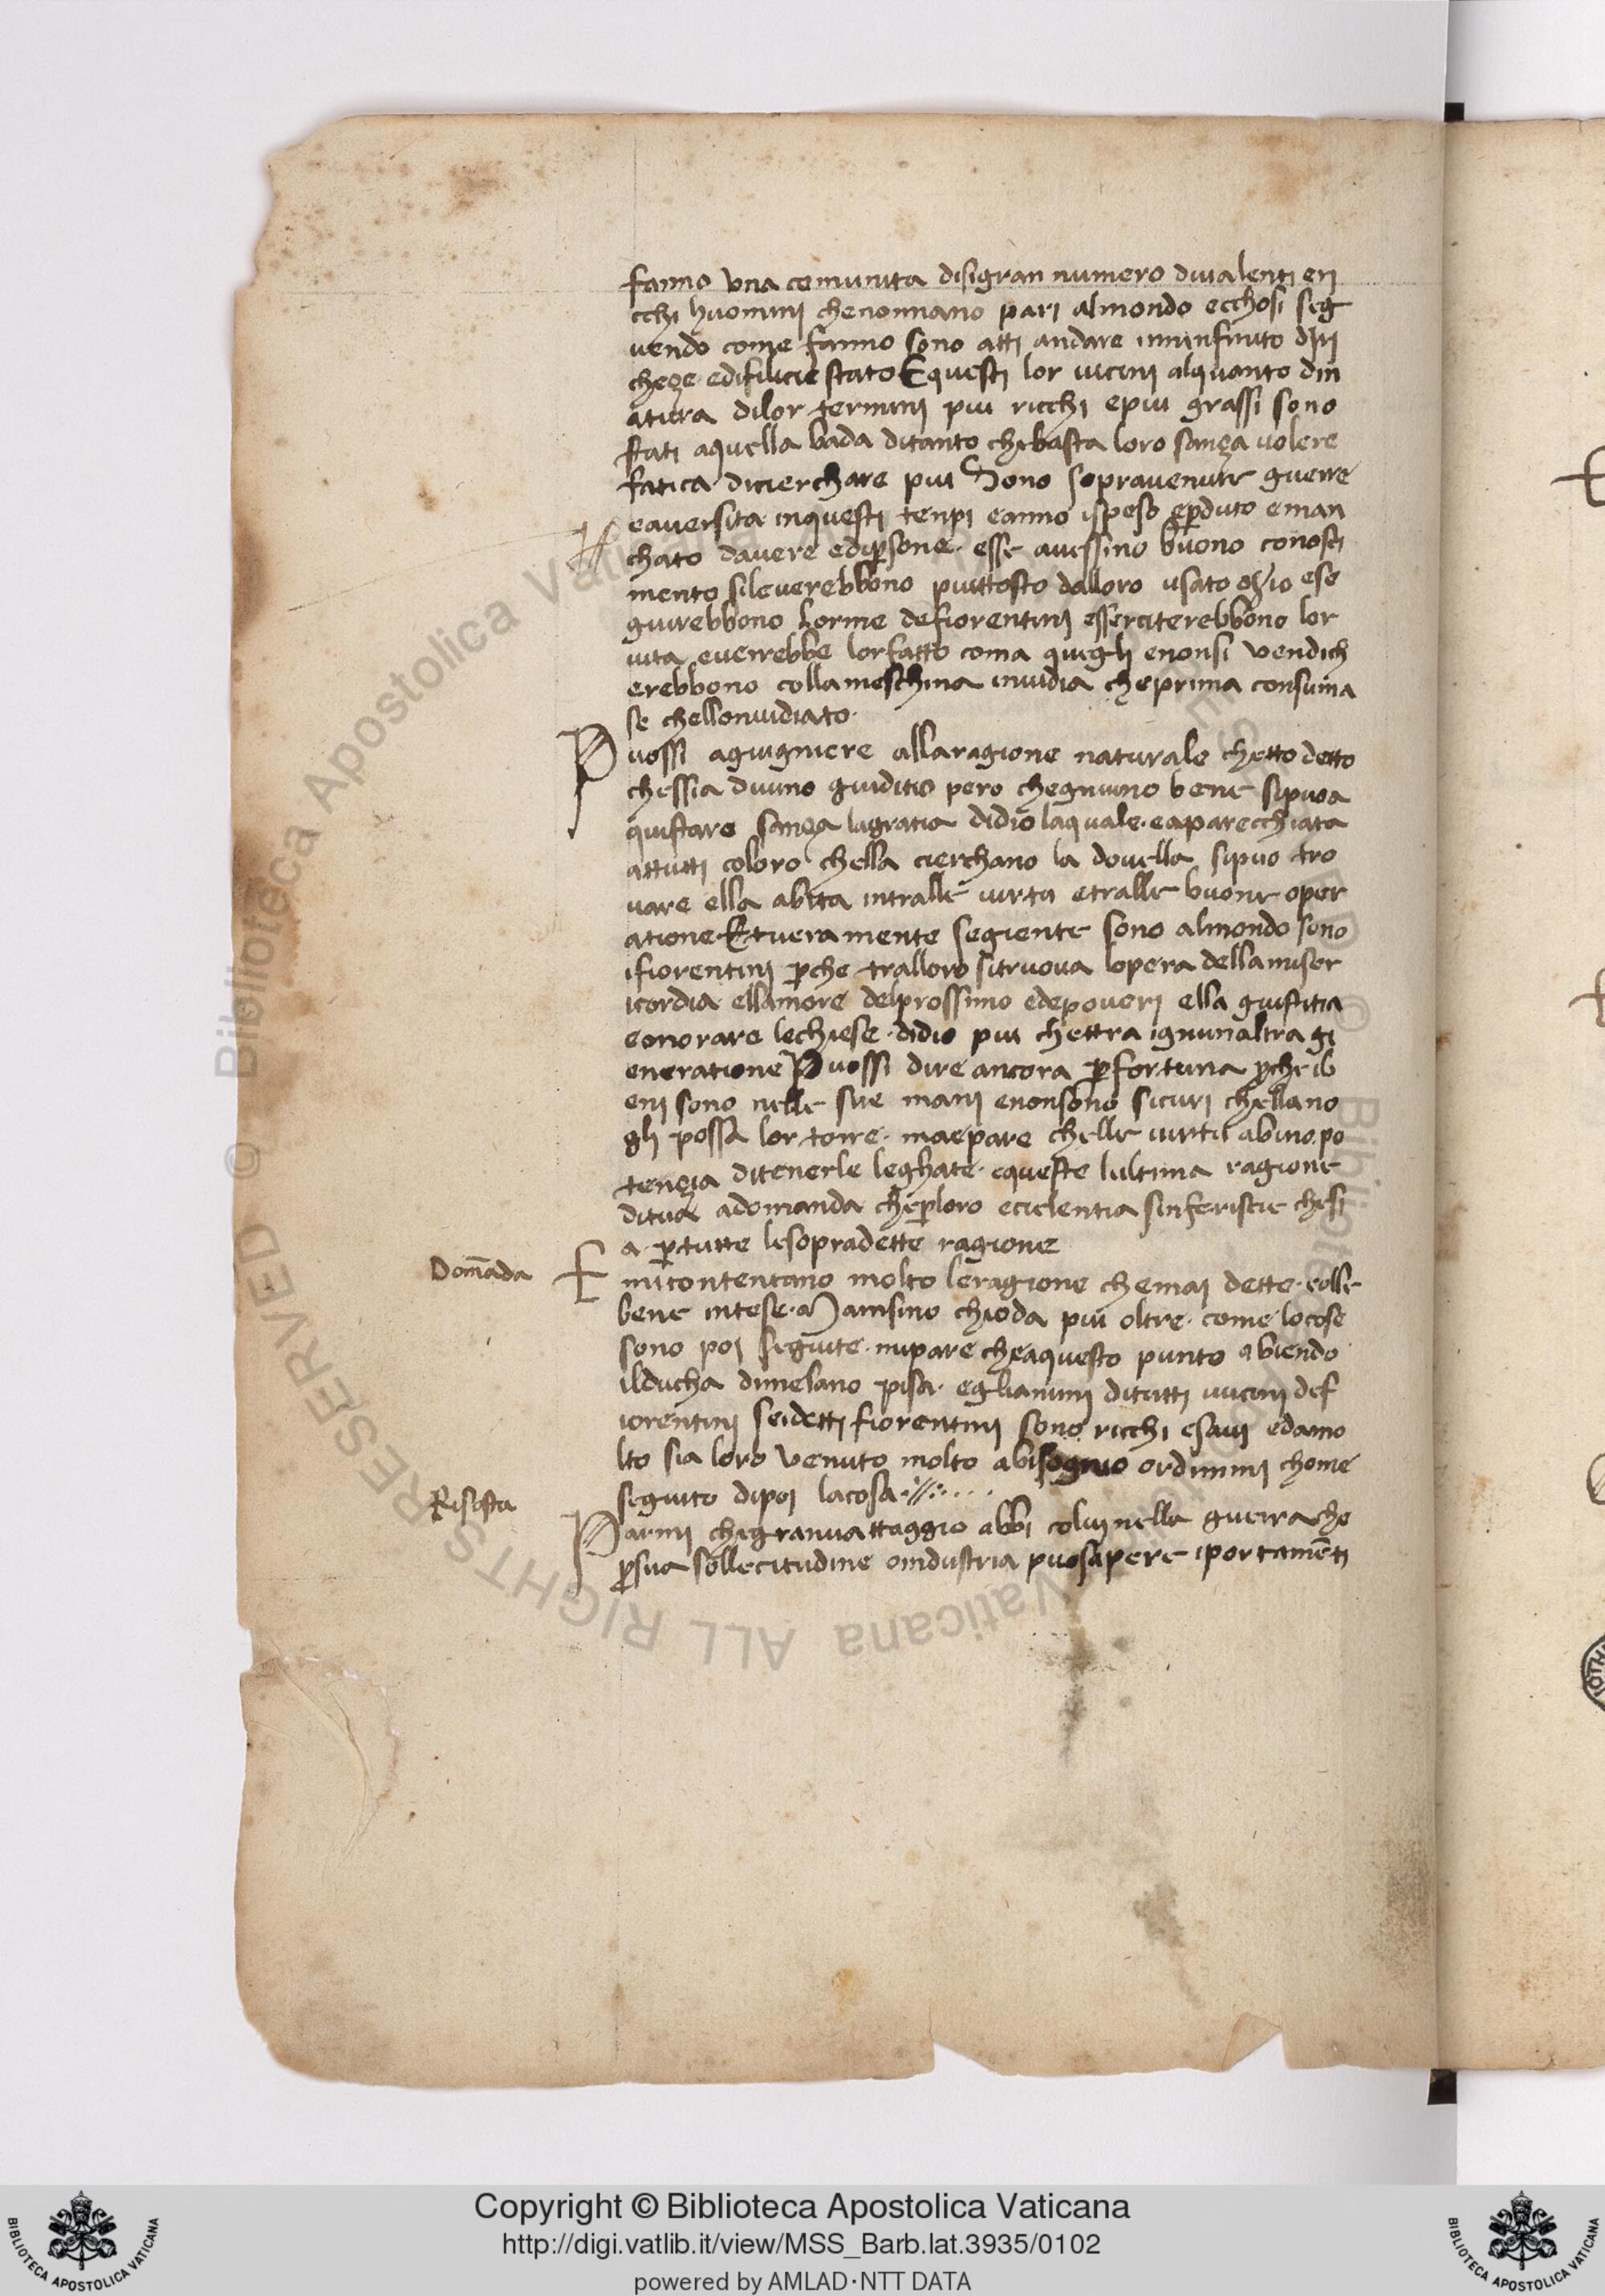 fanno una comunita disigran numero diualenti eri
cchi huomini chenonnano pari almondo ecchosi seg
uendo come fanno sono atti andare inninfinito diri
cheze edifilicie stato Equesti lor uicini alquanto din
atura dilor termini piu ricchi epiu grassi sono
stati aquella bada ditanto chebasta loro sanza uolere
fatica dicierchare piu Sono soprauenute guerre
eauersita inquesti tenpi eanno ispeso eperduto eman
chato dauere edipersone esse auessino buono conosci
mento sileuerebbono piuttosto dalloro usato ozio ese
guirebbono lorme defiorentini esserciterebbono lor
uita euerrebbe lorfatto coma quegli enonsi vendich
erebbono collameschina inuidia cheprima consuma
se chellonuidiato
Puossi aguigniere allaragione naturale chetto detto
chessia duuno giuditio pero chegniuno bene sipuoa
quistare sanza lagratia didio laquale eaparecchiata
attutti coloro chella cierchano la douella sipuo tro
uare ella abita intralle uirtu etralle buone oper
atione Etueramente segiente sono almondo sono
ifiorentini perche tralloro sitruoua lopera dellamiser
icordia ellamore delprossimo edepoueri ella giustitia
eonorare lechiese didio piu chettra ignunaltra gi
eneratione Puossi dire ancora perfortuna perche ib
eni sono nelle sue mani enonsono sicuri chellano
gli possa lor torre maepare chelle uirtu abino po
tenzia ditenerle leghate equeste lultima ragione
ditua adomanda cheperloro ecielentia sinferiscie chesi
a pertutte lesopradette ragione
Domāda
E micontentano molto leragione chemai dette eolle
bene intese Mansino chioda piu oltre come lecose
sono poi seguite mipare cheaquesto punto abiendo
ilducha dimelano pisa eglianimi ditutti iuicini def
iorentini seidetti fiorentini sono ricchi esaui edamo
lto sia loro venuto molto abisognio ordinimi chome
seguito dipoi lacosa
Risposta
Parmi chegranuattaggio abbi colui nella guerra che
persua sollecitudine oindustria puosapere iportamēti
Copyright © Biblioteca Apostolica Vaticana
http://digi.vatlib.it/view/MSS_Barb.lat.3935/0102
powered by AMLAD·NTT DATA
BIBLIOTECA APOSTOLICA VATICANA
BIBLIOTECA APOSTOLICA VATICANA
© Biblioteca Apostolica Vaticana ALL RIGHTS RESERVED